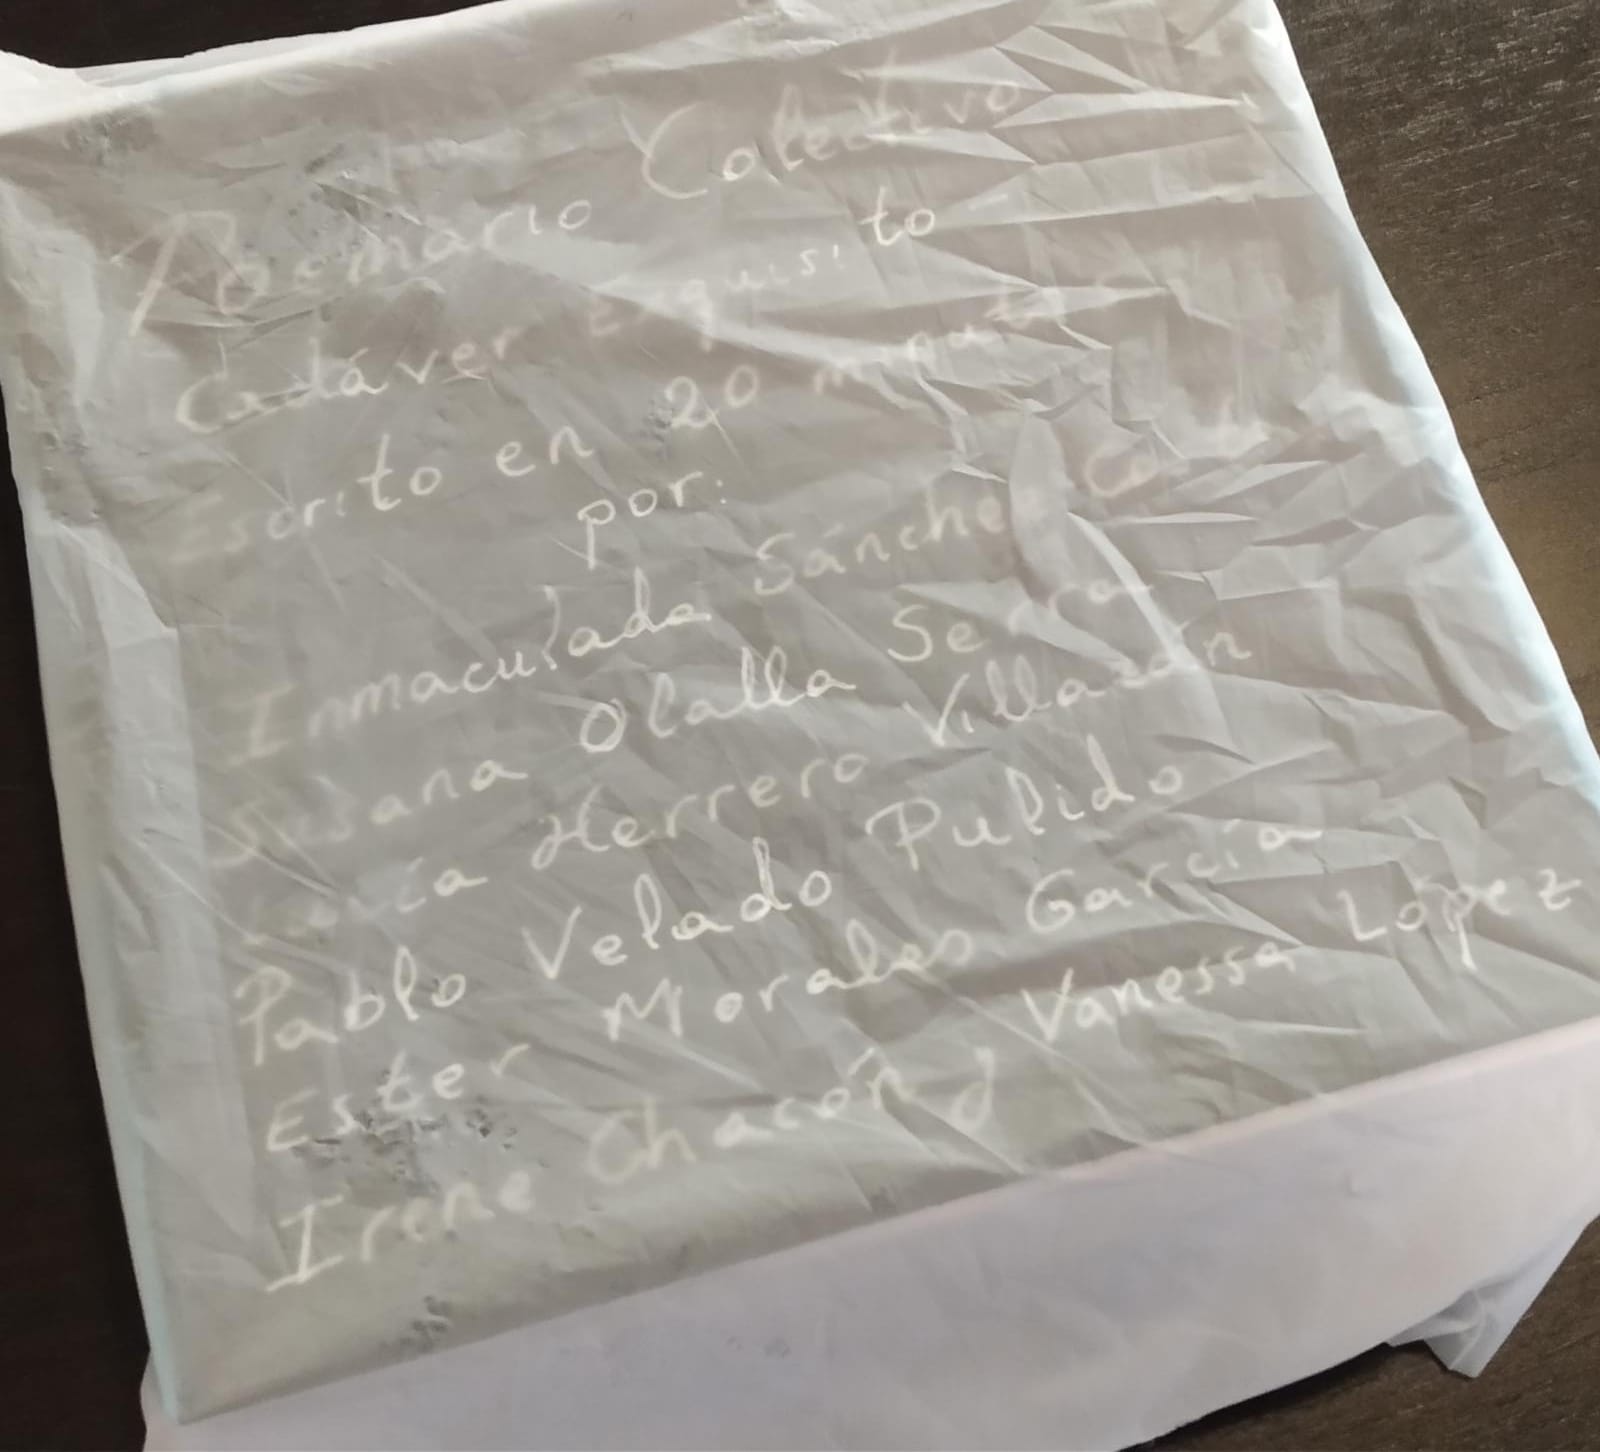 Poemario Colectivo
Cadáver Exquisito
Escrito en 20 minutos
por:
Inmaculada Sánchez
Susana Olalla Serra
Herrero Villazán
Pablo Velado Pulido
Ester Morales García
Irene Chacón y Vanessa López